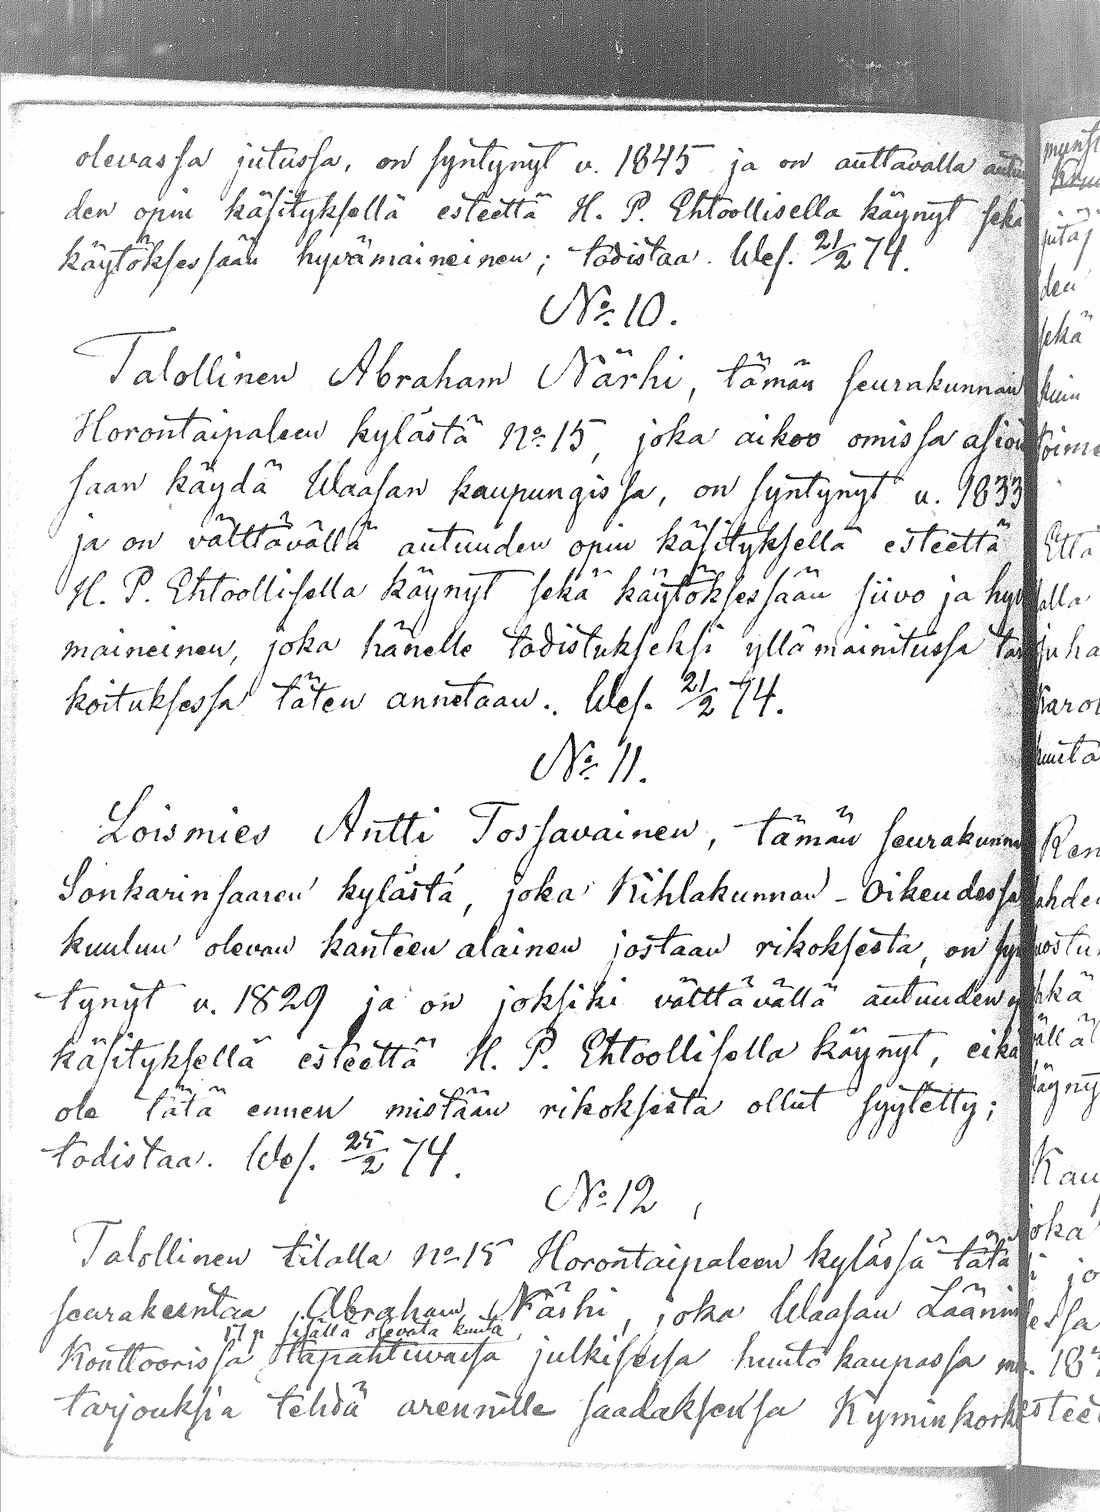 olevassa jutussa, on syntynyt v. 1845 ja on auttavalla autuu
den opin käsityksellä esteettä H. P. Ehtoollisella käynyt sekä
käytöksessään hyvämaineinen; todistaa. Wes. 21/2 74.
No 10.
Talollinen Abraham Närhi, tämän seurakunnan
Horontaipaleen kylästä no 15, joka aikoo omissa asiois
saan käydä Waasan kaupungissa, on syntynyt v. 1833
ja on välttävällä autuuden opin käsityksellä esteettä
H. P. Ehtoollisella käynyt sekä käytöksessään siivo ja hyv
maineinen, joka hänelle todistukseksi yllämainitussa tar
koituksessa täten annetaan. Wes. 21/2 74.
No 11.
Loismies Antti Tossavainen, tämän seurakunna
Sonkarinsaaren kylästä, joka Kihlakunnan-Oikeudessa
kuuluu olevan kanteen alainen jostaan rikoksesta, on syn
tynyt v. 1829 ja on joksiki välttävällä autuuden o
käsityksellä esteettä H. P. Ehtoollisella käynyt, eikä
ole tätä ennen mistään rikoksesta ollut syytetty;
todistaa. Wes. 25/2 74.
No 12
Talollinen tilalla no 15 Horontaipaleen kylässä tätä
seurakuntaa, Abraham Närhi, joka Waasan Läänin
17 p sisällä olevata kuuta
Konttoorissa tapahtuvassa julkisessa huutokaupassa
tarjouksia tehdä arennille saadaksensa Kyminkosk